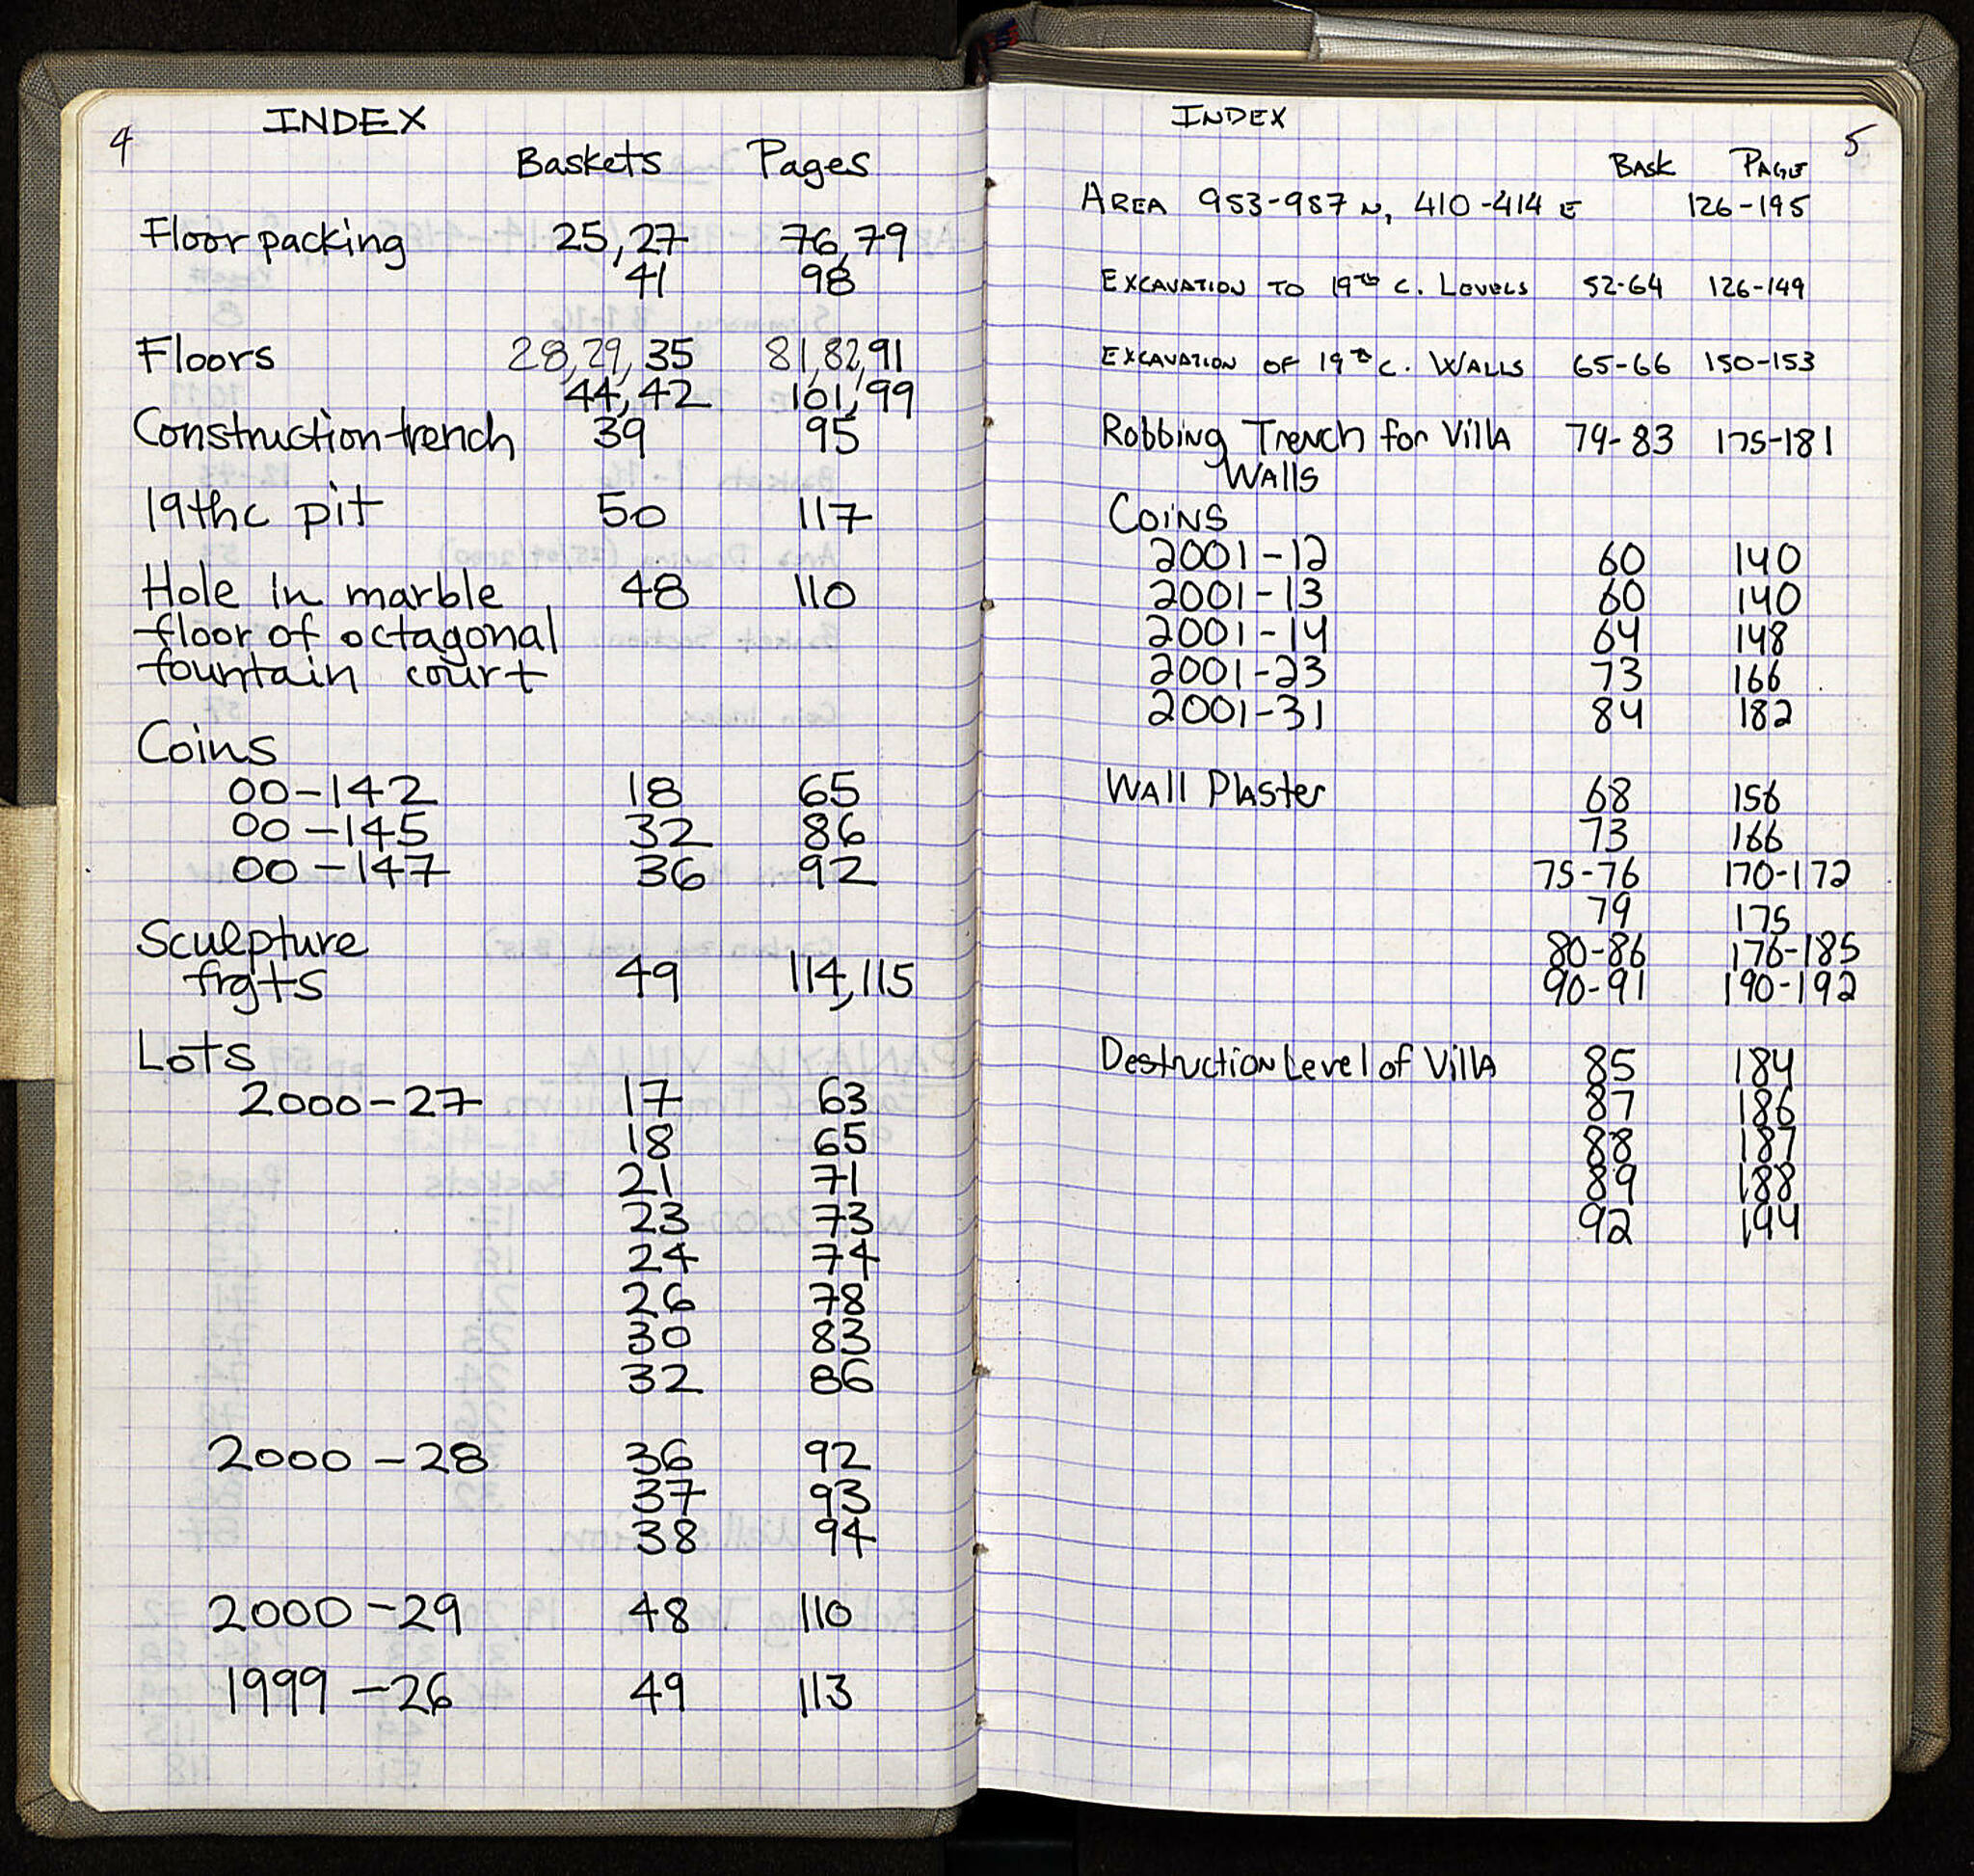 4
INDEX
Baskets Pages
Floor packing 25,27 76,79
41 98
Floors 28,29,35 81,82,91
44,42 101,99
Construction trench 39 95
19thc pit 50 117
Hole in marble 48 110
floor of octagonal
fountain court
Coins
00-142 18 65
00-145 32 86
00-147 36 92
Sculpture
frgts 49 114,115
Lots
2000-27 17 63
18 65
21 71
23 73
24 74
26 78
30 83
32 86
2000-28 36 92
37 93
38 94
2000-29 48 110
1999-26 49 113
INDEX
5
BASK PAGE
AREA 953-987 N, 410-414 E 126-195
EXCAVATION TO 19th C. LEVELS 52-64 126-149
EXCAVATION OF 19th C. WALLS 65-66 150-153
Robbing Trench for Villa 79-83 175-181
Walls
Coins
2001-12 60 140
2001-13 60 140
2001-14 64 148
2001-23 73 166
2001-31 84 182
Wall Plaster 68 156
73 166
75-76 170-172
79 175
80-86 176-185
90-91 190-192
Destruction Level of Villa 85 184
87 186
88 187
89 188
92 194